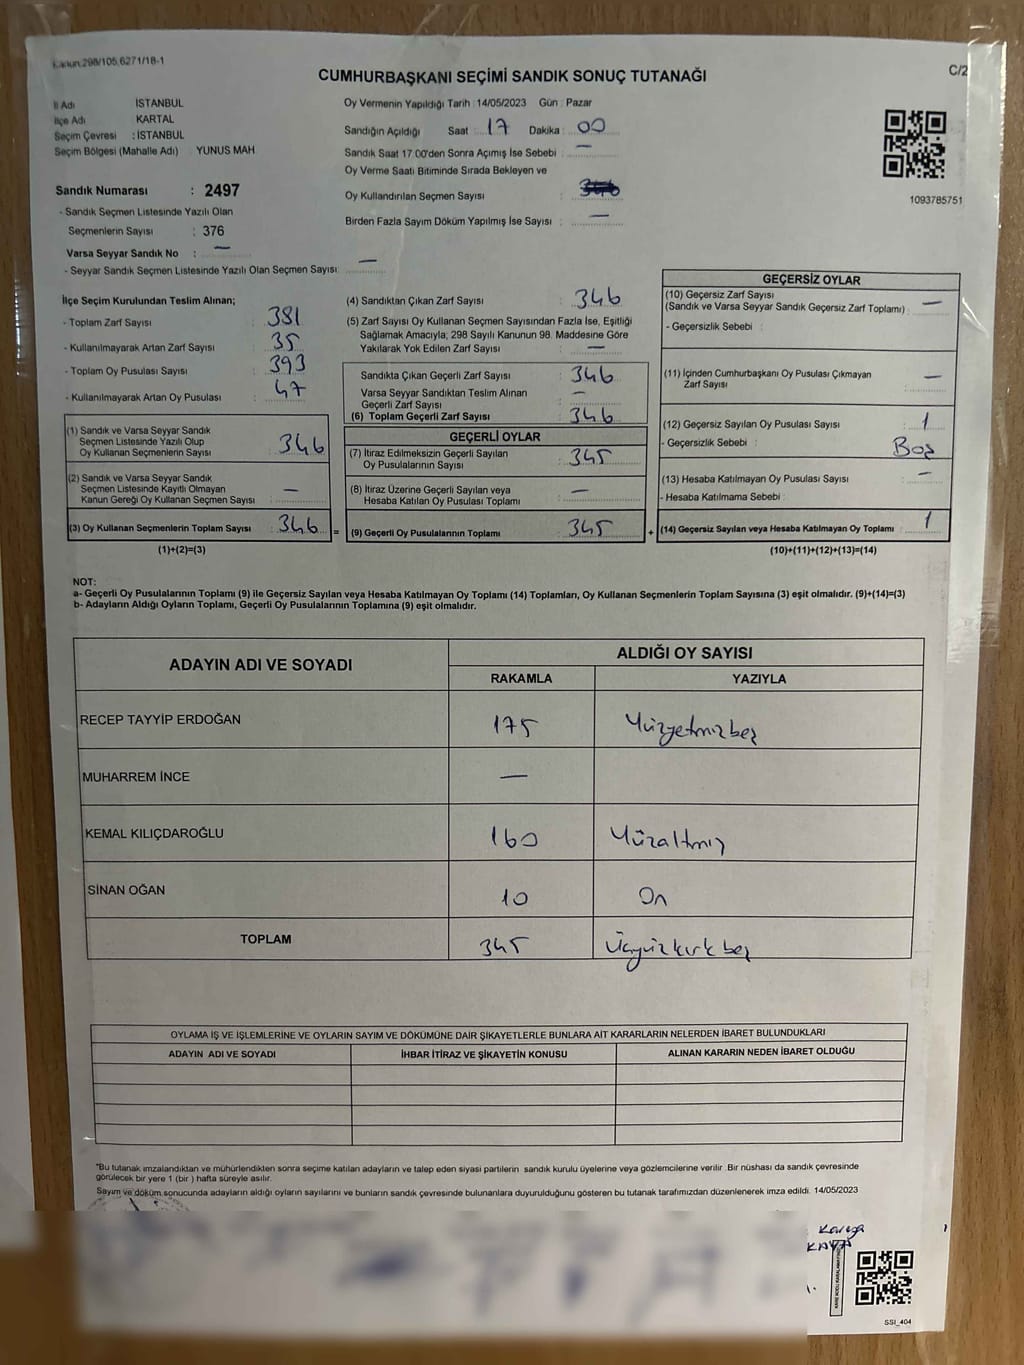 Kanun:298/105,6271/18-1
CUMHURBAŞKANI SEÇİMİ SANDIK SONUÇ TUTANAĞI
C/2
İl Adı : İSTANBUL
İlçe Adı : KARTAL
Seçim Çevresi : İSTANBUL
Seçim Bölgesi (Mahalle Adı) YUNUS MAH
Sandık Numarası : 2497
- Sandık Seçmen Listesinde Yazılı Olan
Seçmenlerin Sayısı : 376
Varsa Seyyar Sandık No : —
- Seyyar Sandık Seçmen Listesinde Yazılı Olan Seçmen Sayısı: —
Oy Vermenin Yapıldığı Tarih : 14/05/2023 Gün : Pazar
Sandığın Açıldığı Saat : 17 Dakika : 00
Sandık Saat 17.00'den Sonra Açımış İse Sebebi : —
Oy Verme Saati Bitiminde Sırada Bekleyen ve
Oy Kullandırılan Seçmen Sayısı :
Birden Fazla Sayım Döküm Yapılmış İse Sayısı : —
1093785751
İlçe Seçim Kurulundan Teslim Alınan;
- Toplam Zarf Sayısı : 381
- Kullanılmayarak Artan Zarf Sayısı : 35
- Toplam Oy Pusulası Sayısı : 393
- Kullanılmayarak Artan Oy Pusulası : 47
(1) Sandık ve Varsa Seyyar Sandık
Seçmen Listesinde Yazılı Olup
Oy Kullanan Seçmenlerin Sayısı : 346
(2) Sandık ve Varsa Seyyar Sandık
Seçmen Listesinde Kayıtlı Olmayan
Kanun Gereği Oy Kullanan Seçmen Sayısı : —
(3) Oy Kullanan Seçmenlerin Toplam Sayısı : 346 =
(1)+(2)=(3)
(4) Sandıktan Çıkan Zarf Sayısı : 346
(5) Zarf Sayısı Oy Kullanan Seçmen Sayısından Fazla İse, Eşitliği
Sağlamak Amacıyla, 298 Sayılı Kanunun 98. Maddesine Göre
Yakılarak Yok Edilen Zarf Sayısı : —
Sandıkta Çıkan Geçerli Zarf Sayısı : 346
Varsa Seyyar Sandıktan Teslim Alınan
Geçerli Zarf Sayısı : —
(6) Toplam Geçerli Zarf Sayısı : 346
GEÇERLİ OYLAR
(7) İtiraz Edilmeksizin Geçerli Sayılan
Oy Pusulalarının Sayısı : 345
(8) İtiraz Üzerine Geçerli Sayılan veya
Hesaba Katılan Oy Pusulası Toplamı : —
(9) Geçerli Oy Pusulalarının Toplamı : 345 +
GEÇERSİZ OYLAR
(10) Geçersiz Zarf Sayısı
(Sandık ve Varsa Seyyar Sandık Geçersiz Zarf Toplamı) : —
- Geçersizlik Sebebi :
(11) İçinden Cumhurbaşkanı Oy Pusulası Çıkmayan
Zarf Sayısı : —
(12) Geçersiz Sayılan Oy Pusulası Sayısı : 1
- Geçersizlik Sebebi : Boş
(13) Hesaba Katılmayan Oy Pusulası Sayısı : —
- Hesaba Katılmama Sebebi :
(14) Geçersiz Sayılan veya Hesaba Katılmayan Oy Toplamı : 1
(10)+(11)+(12)+(13)=(14)
NOT:
a- Geçerli Oy Pusulalarının Toplamı (9) ile Geçersiz Sayılan veya Hesaba Katılmayan Oy Toplamı (14) Toplamları, Oy Kullanan Seçmenlerin Toplam Sayısına (3) eşit olmalıdır. (9)+(14)=(3)
b- Adayların Aldığı Oyların Toplamı, Geçerli Oy Pusulalarının Toplamına (9) eşit olmalıdır.
ADAYIN ADI VE SOYADI ALDIĞI OY SAYISI
RAKAMLA YAZIYLA
RECEP TAYYİP ERDOĞAN 175 Yüzyetmişbeş
MUHARREM İNCE —
KEMAL KILIÇDAROĞLU 160 Yüzaltmış
SİNAN OĞAN 10 On
TOPLAM 345 Üçyüzkırkbeş
OYLAMA İŞ VE İŞLEMLERİNE VE OYLARIN SAYIM VE DÖKÜMÜNE DAİR ŞİKAYETLERLE BUNLARA AİT KARARLARIN NELERDEN İBARET BULUNDUKLARI
ADAYIN ADI VE SOYADI İHBAR İTİRAZ VE ŞİKAYETİN KONUSU ALINAN KARARIN NEDEN İBARET OLDUĞU
"Bu tutanak imzalandıktan ve mühürlendikten sonra seçime katılan adayların ve talep eden siyasi partilerin sandık kurulu üyelerine veya gözlemcilerine verilir .Bir nüshası da sandık çevresinde
görülecek bir yere 1 (bir ) hafta süreyle asılır.
Sayım ve döküm sonucunda adayların aldığı oyların sayılarını ve bunların sandık çevresinde bulunanlara duyurulduğunu gösteren bu tutanak tarafımızdan düzenlenerek imza edildi. 14/05/2023
KAYA
SSI_404